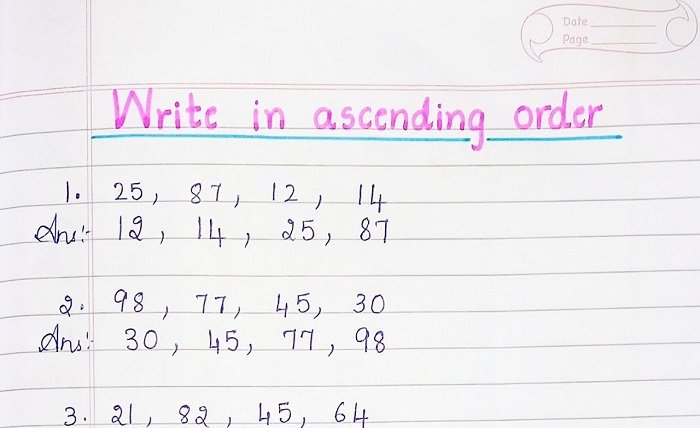 Date
Page
Write in ascending order
1. 25, 87, 12, 14
Ans:- 12, 14, 25, 87
2. 98, 77, 45, 30
Ans:- 30, 45, 77, 98
3. 21, 82, 45, 64